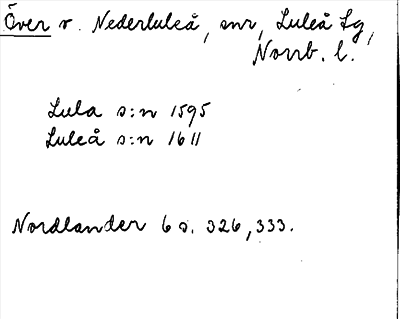 Över v. Nederluleå, snr, Luleå Lg,
Norrb. l.
Lula s:n 1595
Luleå s:n 1611
Nordlander 6 s. 326, 333.